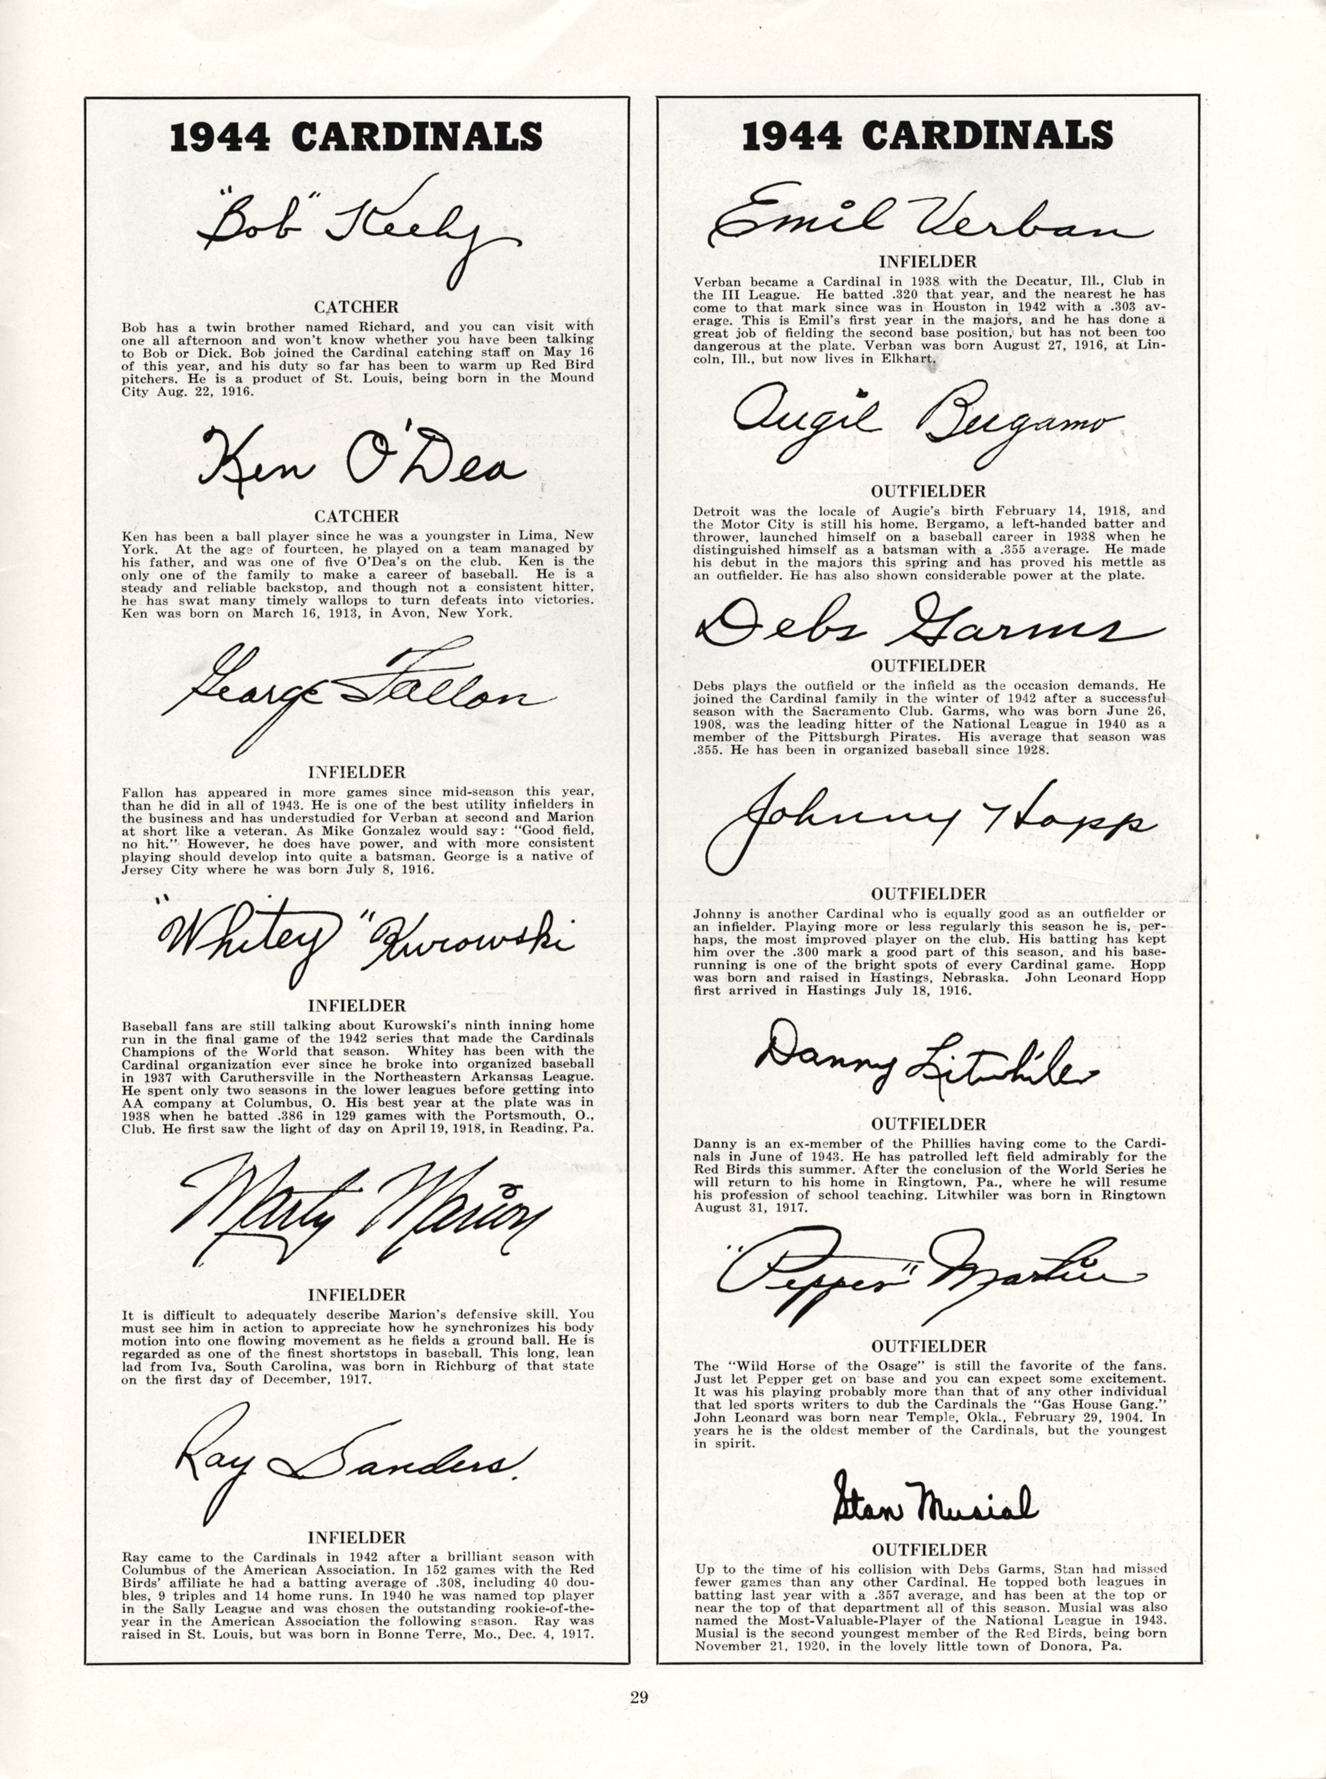 1944 CARDINALS
"Bob" Keely
CATCHER
Bob has a twin brother named Richard, and you can visit with
one all afternoon and won't know whether you have been talking
to Bob or Dick. Bob joined the Cardinal catching staff on May 16
of this year, and his duty so far has been to warm up Red Bird
pitchers. He is a product of St. Louis, being born in the Mound
City Aug. 22, 1916.
Ken O'Dea
CATCHER
Ken has been a ball player since he was a youngster in Lima, New
York. At the age of fourteen, he played on a team managed by
his father, and was one of five O'Dea's on the club. Ken is the
only one of the family to make a career of baseball. He is a
steady and reliable backstop, and though not a consistent hitter,
he has swat many timely wallops to turn defeats into victories.
Ken was born on March 16, 1913, in Avon, New York.
George Fallon
INFIELDER
Fallon has appeared in more games since mid-season this year,
than he did in all of 1943. He is one of the best utility infielders in
the business and has understudied for Verban at second and Marion
at short like a veteran. As Mike Gonzalez would say: "Good field,
no hit." However, he does have power, and with more consistent
playing should develop into quite a batsman. George is a native of
Jersey City where he was born July 8, 1916.
"Whitey" Kurowski
INFIELDER
Baseball fans are still talking about Kurowski's ninth inning home
run in the final game of the 1942 series that made the Cardinals
Champions of the World that season. Whitey has been with the
Cardinal organization ever since he broke into organized baseball
in 1937 with Caruthersville in the Northeastern Arkansas League.
He spent only two seasons in the lower leagues before getting into
AA company at Columbus, O. His best year at the plate was in
1938 when he batted .386 in 129 games with the Portsmouth, O.,
Club. He first saw the light of day on April 19, 1918, in Reading, Pa.
Marty Marion
INFIELDER
It is difficult to adequately describe Marion's defensive skill. You
must see him in action to appreciate how he synchronizes his body
motion into one flowing movement as he fields a ground ball. He is
regarded as one of the finest shortstops in baseball. This long, lean
lad from Iva, South Carolina, was born in Richburg of that state
on the first day of December, 1917.
Ray Sanders.
INFIELDER
Ray came to the Cardinals in 1942 after a brilliant season with
Columbus of the American Association. In 152 games with the Red
Birds' affiliate he had a batting average of .308, including 40 dou-
bles, 9 triples and 14 home runs. In 1940 he was named top player
in the Sally League and was chosen the outstanding rookie-of-the-
year in the American Association the following season. Ray was
raised in St. Louis, but was born in Bonne Terre, Mo., Dec. 4, 1917.
1944 CARDINALS
Emil Verban
INFIELDER
Verban became a Cardinal in 1938 with the Decatur, Ill., Club in
the III League. He batted .320 that year, and the nearest he has
come to that mark since was in Houston in 1942 with a .303 av-
erage. This is Emil's first year in the majors, and he has done a
great job of fielding the second base position, but has not been too
dangerous at the plate. Verban was born August 27, 1916, at Lin-
coln, Ill., but now lives in Elkhart.
Augie Bergamo
OUTFIELDER
Detroit was the locale of Augie's birth February 14, 1918, and
the Motor City is still his home. Bergamo, a left-handed batter and
thrower, launched himself on a baseball career in 1938 when he
distinguished himself as a batsman with a .355 average. He made
his debut in the majors this spring and has proved his mettle as
an outfielder. He has also shown considerable power at the plate.
Debs Garms
OUTFIELDER
Debs plays the outfield or the infield as the occasion demands. He
joined the Cardinal family in the winter of 1942 after a successful
season with the Sacramento Club. Garms, who was born June 26,
1908, was the leading hitter of the National League in 1940 as a
member of the Pittsburgh Pirates. His average that season was
.355. He has been in organized baseball since 1928.
Johnny Hopp
OUTFIELDER
Johnny is another Cardinal who is equally good as an outfielder or
an infielder. Playing more or less regularly this season he is, per-
haps, the most improved player on the club. His batting has kept
him over the .300 mark a good part of this season, and his base-
running is one of the bright spots of every Cardinal game. Hopp
was born and raised in Hastings, Nebraska. John Leonard Hopp
first arrived in Hastings July 18, 1916.
Danny Litwhiler
OUTFIELDER
Danny is an ex-member of the Phillies having come to the Cardi-
nals in June of 1943. He has patrolled left field admirably for the
Red Birds this summer. After the conclusion of the World Series he
will return to his home in Ringtown, Pa., where he will resume
his profession of school teaching. Litwhiler was born in Ringtown
August 31, 1917.
"Pepper" Martin
OUTFIELDER
The "Wild Horse of the Osage" is still the favorite of the fans.
Just let Pepper get on base and you can expect some excitement.
It was his playing probably more than that of any other individual
that led sports writers to dub the Cardinals the "Gas House Gang."
John Leonard was born near Temple, Okla., February 29, 1904. In
years he is the oldest member of the Cardinals, but the youngest
in spirit.
Stan Musial
OUTFIELDER
Up to the time of his collision with Debs Garms, Stan had missed
fewer games than any other Cardinal. He topped both leagues in
batting last year with a .357 average, and has been at the top or
near the top of that department all of this season. Musial was also
named the Most-Valuable-Player of the National League in 1943.
Musial is the second youngest member of the Red Birds, being born
November 21, 1920, in the lovely little town of Donora, Pa.
29